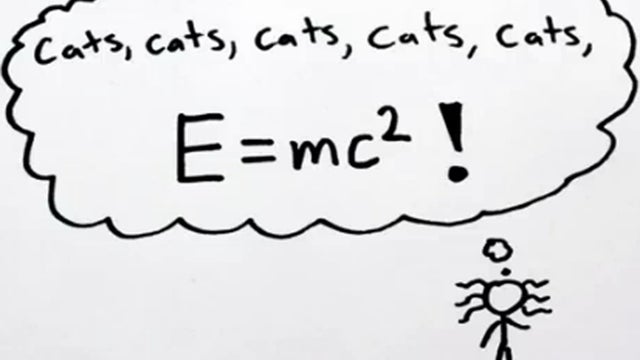 cats, cats, cats, cats, cats,
E=mc² !